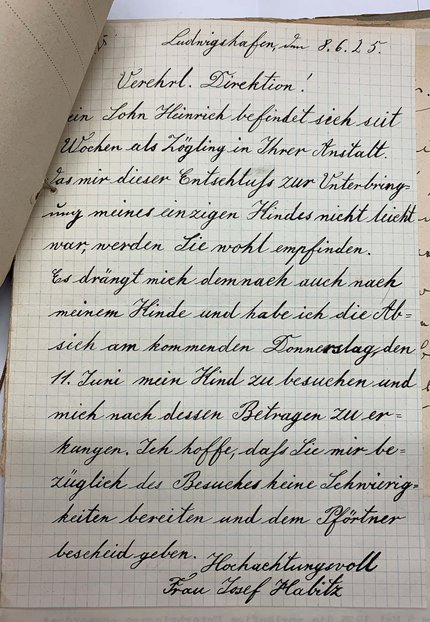 Ludwigshafen, den 8.6.25.
Verehrl. Direktion!
ein Sohn Heinrich befindet sich seit
Wochen als Zögling in Ihrer Anstalt.
Das mir dieser Entschluß zur Unterbring-
ung meines einzigen Kindes nicht leicht
war, werden Sie wohl empfinden.
Es drängt mich demnach auch nach
meinem Kinde und habe ich die Ab=
sich am kommenden Donnerstag, den
11. Juni mein Kind zu besuchen und
mich nach dessen Betragen zu er=
kungen. Ich hoffe, daß Sie mir be=
züglich des Besuches keine Schwierig=
keiten bereiten und dem Pförtner
bescheid geben.
Hochachtungsvoll
Frau Josef Habitz